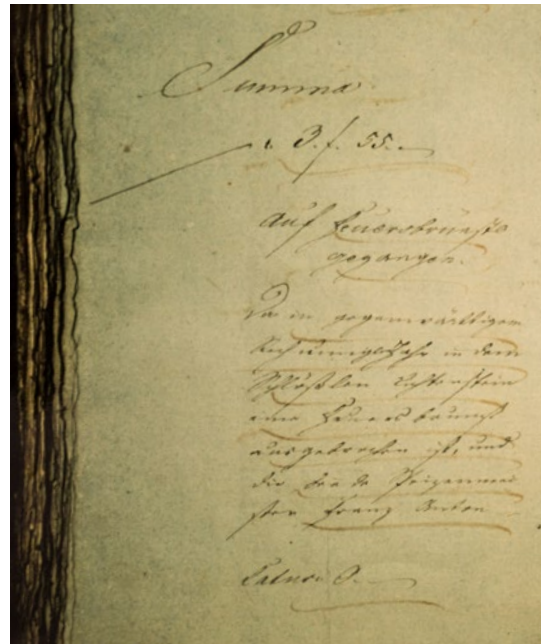 Summa
. 3. f. 55.
Auf Feuersbrünste
gegangen.
Da in gegenwärtigem
Rechnungsjahr in dem
Schlößlen Lichtenstein
eine Feuersbrunst
ausgebrochen ist, und
die
ster Franz Anton
Latus 0.